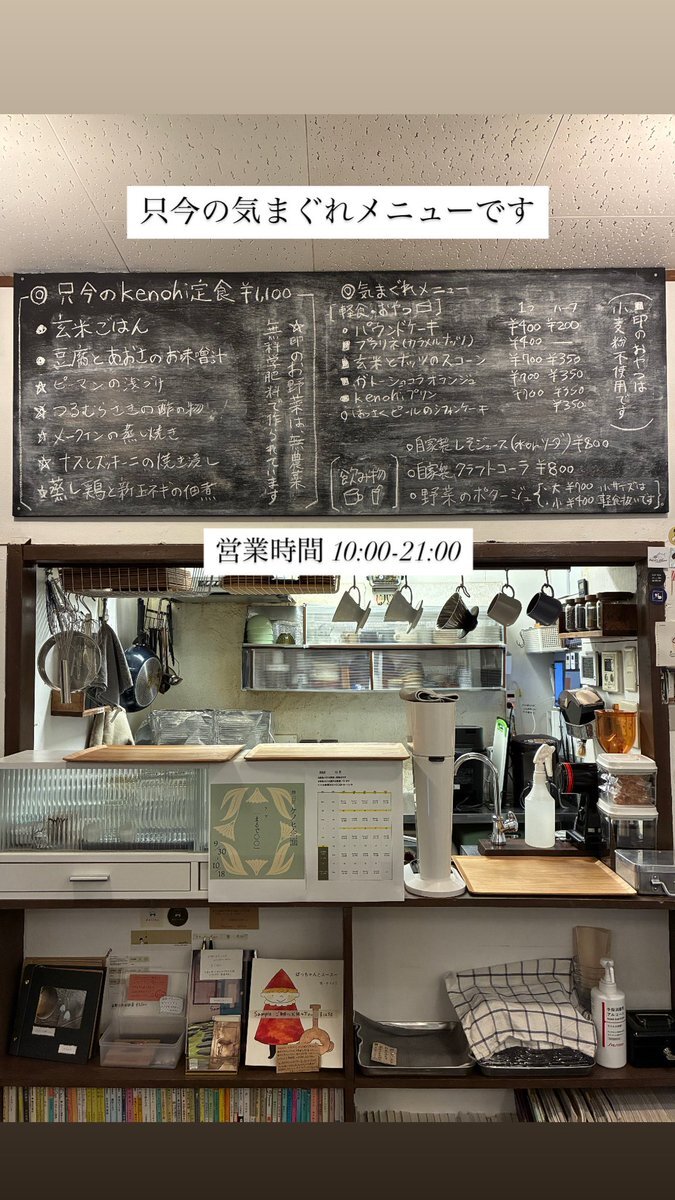 只今の気まぐれメニューです
◎只今のkenohi定食¥1,100
・玄米ごはん
・豆腐とあおさのお味噌汁
☆ピーマンの浅づけ
☆つるむらさきの酢の物
☆メークインの蒸し焼き
☆ナスとズッキーニの焼き浸し
☆蒸し鶏と新玉ネギの佃煮
☆印のお野菜は無農薬
無科学肥料で作られてます
◎気まぐれメニュー
[軽食・おやつ]
1コ ハーフ
パウンドケーキ ¥400 ¥200
プラリネ(カラメルナッツ) ¥400 —
玄米とナッツのスコーン ¥700 ¥350
ガトーショコラオランジュ ¥700 ¥350
kenohiプリン ¥700 ¥350
はっさくピールのシフォンケーキ ¥350
■印のおやつは
小麦粉不使用です
飲み物
○自家製しそジュース(水orソーダ)¥800
○自家製クラフトコーラ¥800
・野菜のポタージュ
・大¥700 小サイズは
・小¥400 軽食扱いです
営業時間 10:00-21:00
まるで100
9/30
10/18
ばっちゃんとスースー
Sample